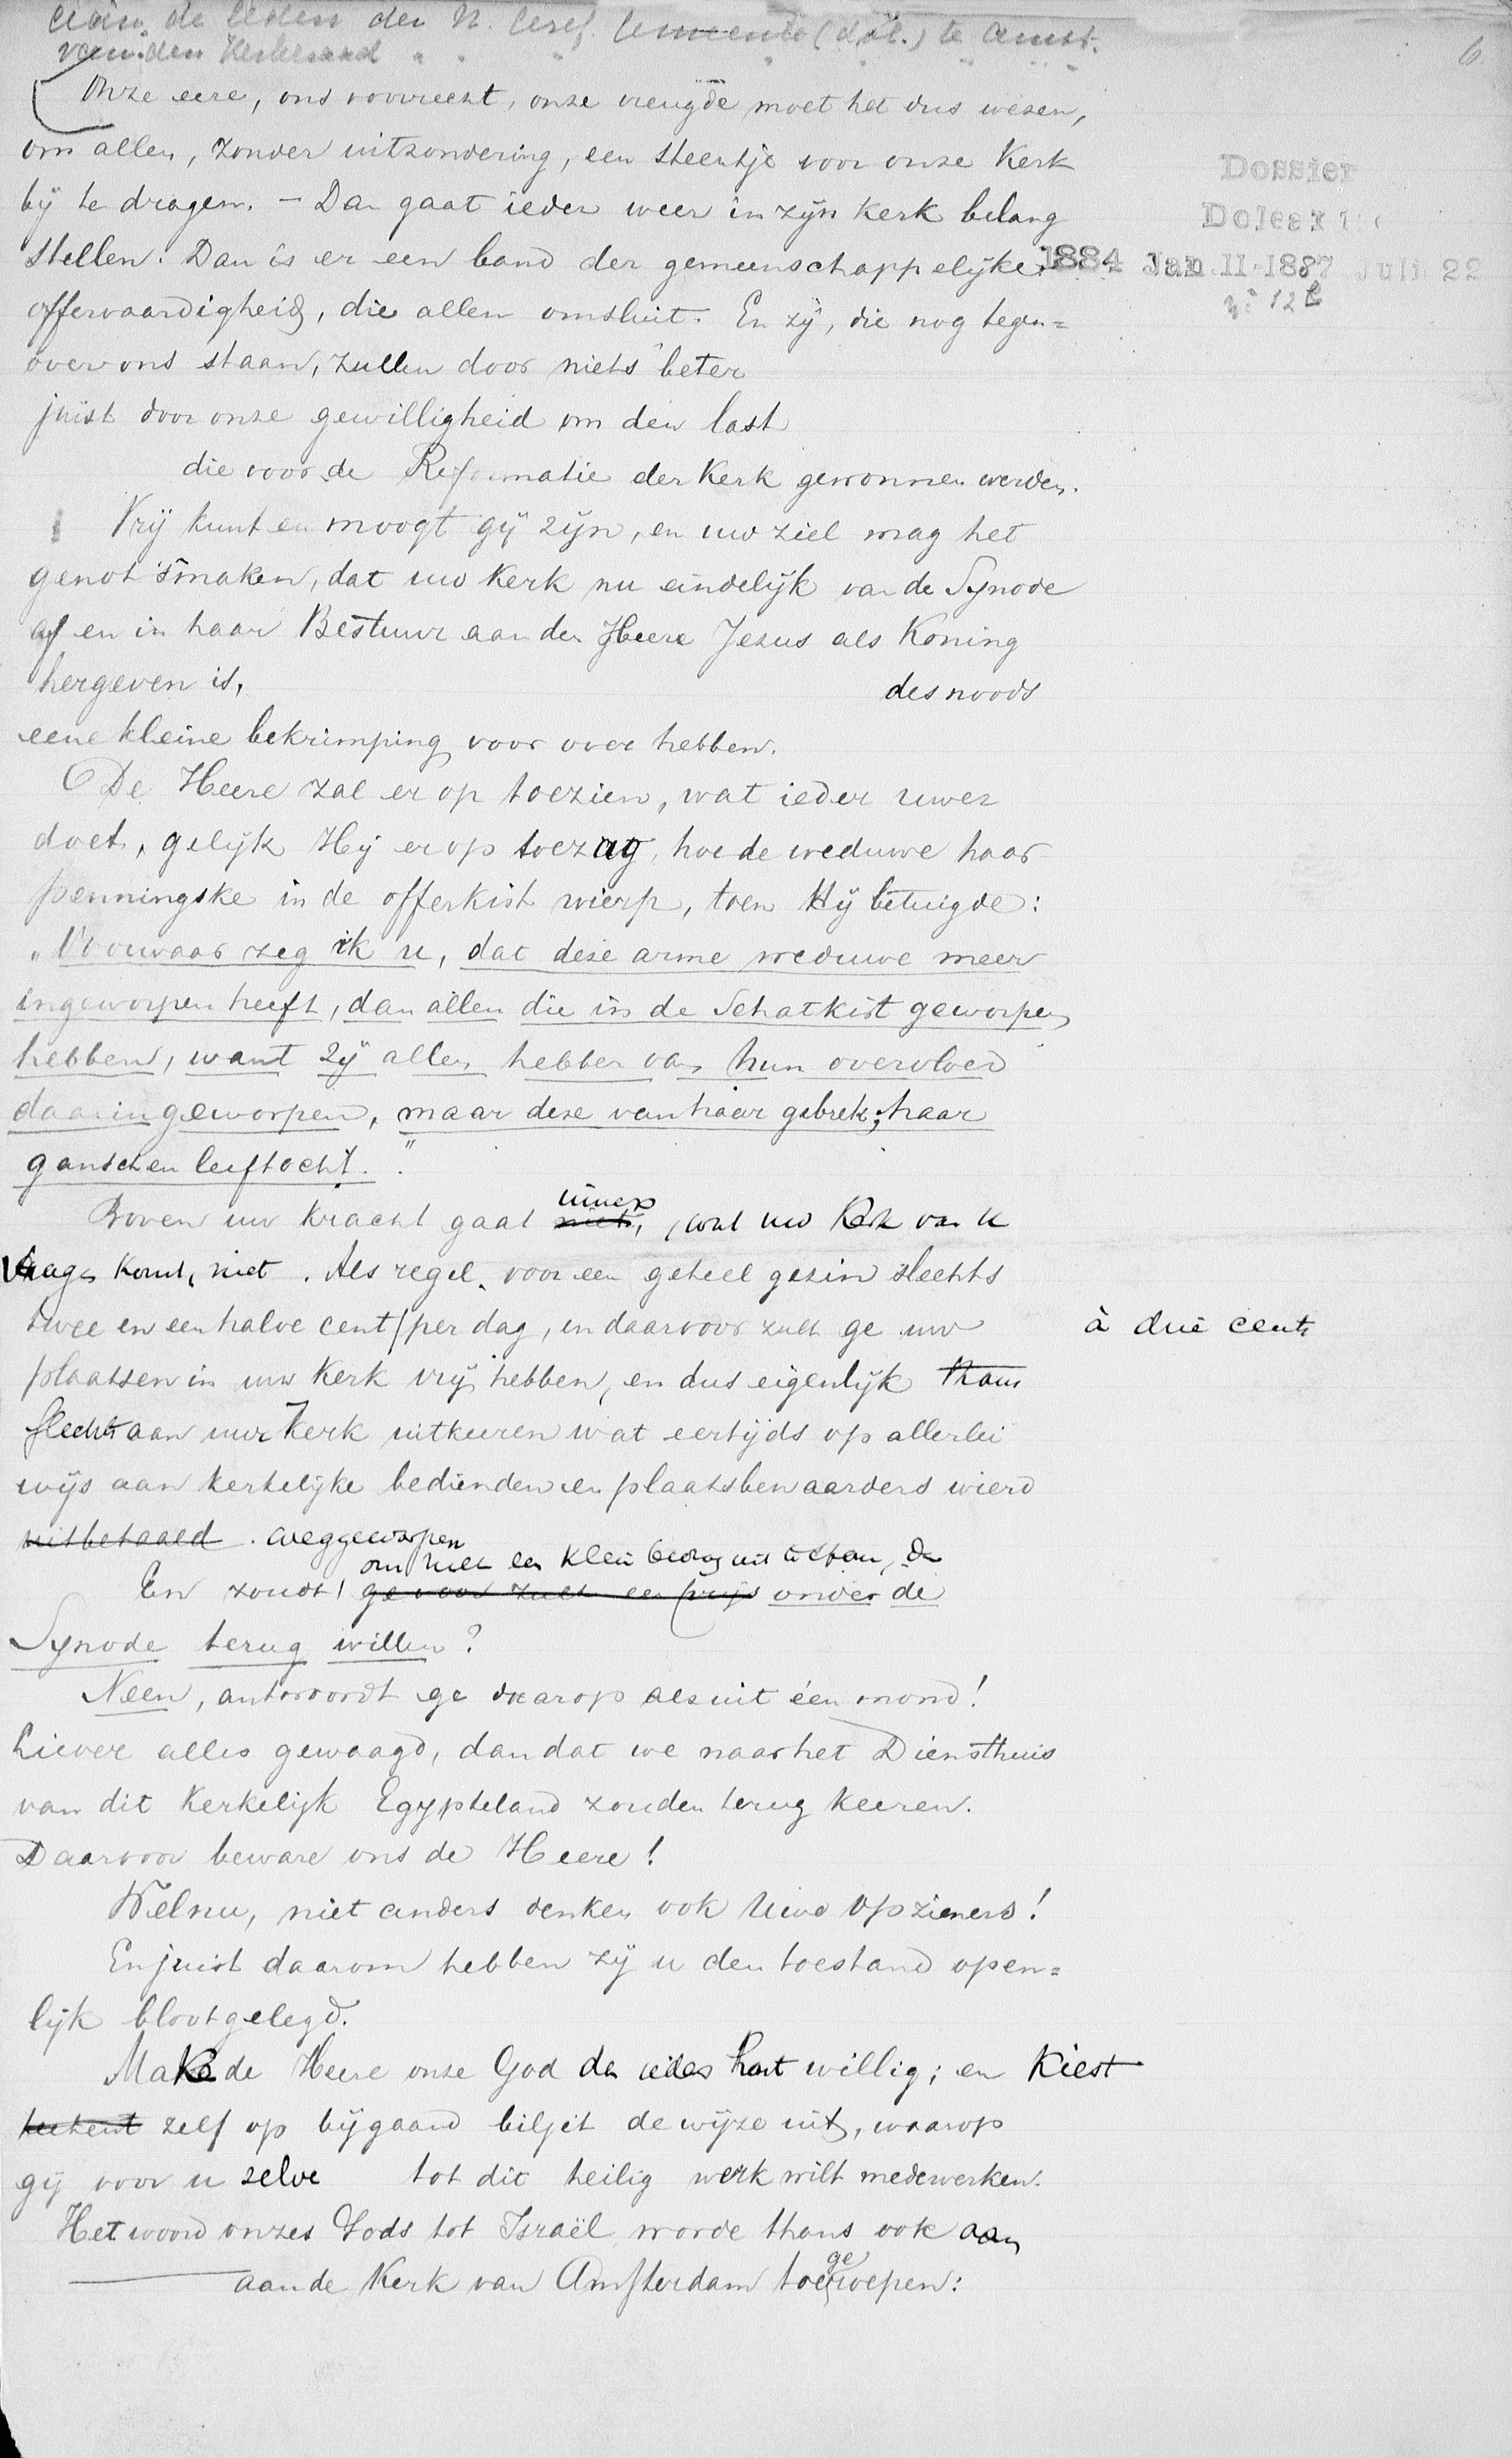 Aan de leden der N. Geref. Gemeente (dol.) te Amst.
van den Kerkeraad " " " " " "
6
Onze eere, ons voorrecht, onze vreugde moet het dus wezen,
om allen, zonder uitzondering, een steentje voor onze Kerk
bij te dragen. – Dan gaat ieder weer in zijn kerk belang
stellen. Dan is er een band der gemeenschappelijke
offervaardigheid, die allen omsluit. En zij, die nog tegen=
over ons staan, zullen door niets beter
juist door onze gewilligheid om den last
die voor de Reformatie der Kerk gewonnen werden.
Dossier
Doleantie
1884 Jan. 11-1887 Juli 22
Vrij kunt en moogt gij zijn, en uw ziel mag het
genot smaken, dat uw Kerk nu eindelijk van de Synode
af en in haar Bestuur aan den Heere Jezus als Koning
hergeven is, desnoods
eene kleine bekrimping voor over hebben.
De Heere zal er op toezien, wat ieder uwer
doet, gelijk Hij er op toezag, hoe de weduwe haar
penningske in de offerkist wierp, toen Hij betuigde:
"Voorwaar zeg ik u, dat deze arme weduwe meer
ingeworpen heeft, dan allen die in de Schatkist geworpen
hebben, want zij allen hebben van hun overvloed
daarin geworpen, maar deze van haar gebrek, haar
ganschen leeftocht."
Boven uw kracht gaat niets, wat uw Kerk van u
vragen komt, niet. Als regel voor een geheel gezin slechts
twee en een halve cent / per dag, en daarvoor zult ge uw
à drie cents
plaatsen in uw Kerk vrij hebben, en dus eigenlijk thans
slechts aan uwe Kerk uitkeeren wat eertijds op allerlei
wijs aan kerkelijke bedienden en plaatsbewaarders wierd
uitbetaald. weggeworpen
om met een klein bedrag uit te staan, de
En zoudt ge voor zulk een prijs onder de
Synode terug willen?
Neen, antwoordt ge daarop als uit één mond!
Liever alles gewaagd, dan dat we naar het Diensthuis
van dit Kerkelijk Egypteland zouden terug keeren.
Daarvoor beware ons de Heere!
Welnu, niet anders denken ook Uwe Opzieners!
En juist daarom hebben zij u den toestand open=
lijk blootgelegd.
Make de Heere onze God dan ieders hart willig; en Kiest
teekent zelf op bijgaand biljet de wijze uit, waarop
gij voor u zelve tot dit heilig werk wilt medewerken.
Het woord onzes Gods tot Israël worde thans ook aan
aan de Kerk van Amsterdam toegeroepen: